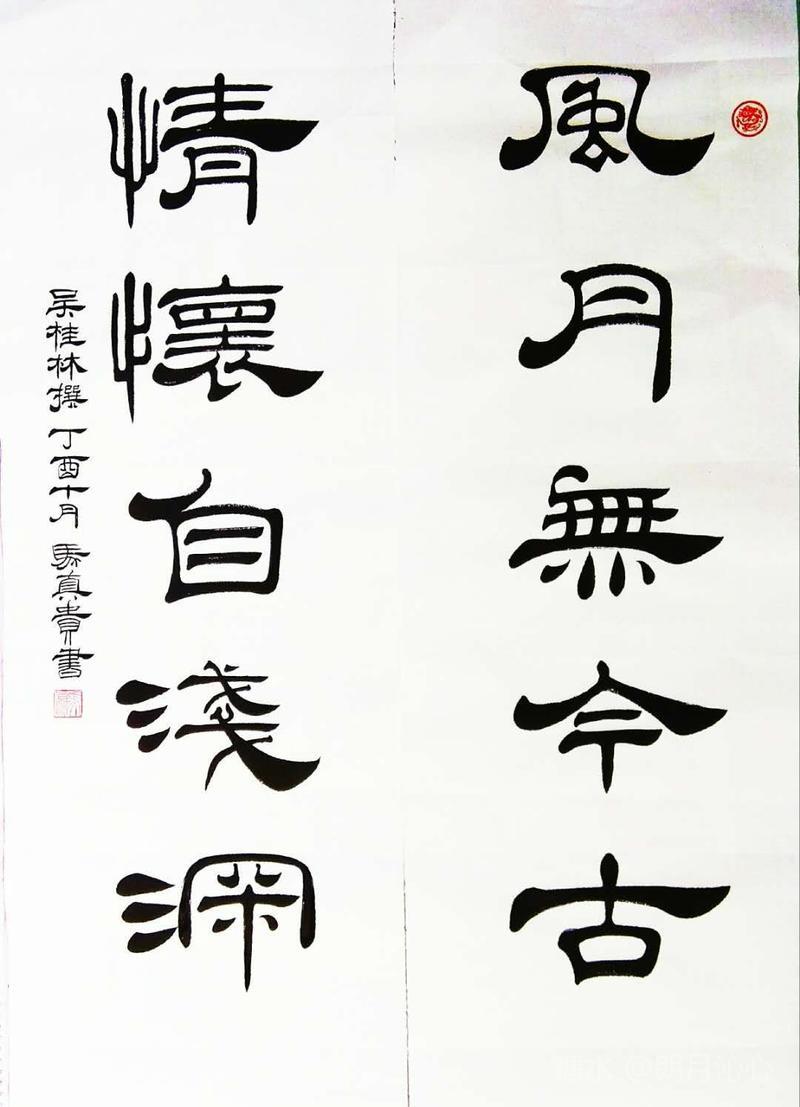 風月無今古
情懷自淺深
吴桂林撰 丁酉十月 馬真貴书